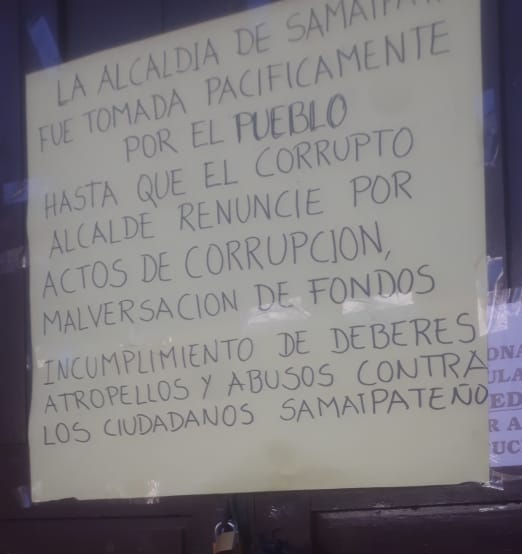 LA ALCALDIA DE SAMAIPATA
FUE TOMADA PACIFICAMENTE
POR EL PUEBLO
HASTA QUE EL CORRUPTO
ALCALDE RENUNCIE POR
ACTOS DE CORRUPCION,
MALVERSACION DE FONDOS
INCUMPLIMIENTO DE DEBERES
ATROPELLOS Y ABUSOS CONTRA
LOS CIUDADANOS SAMAIPATEÑO